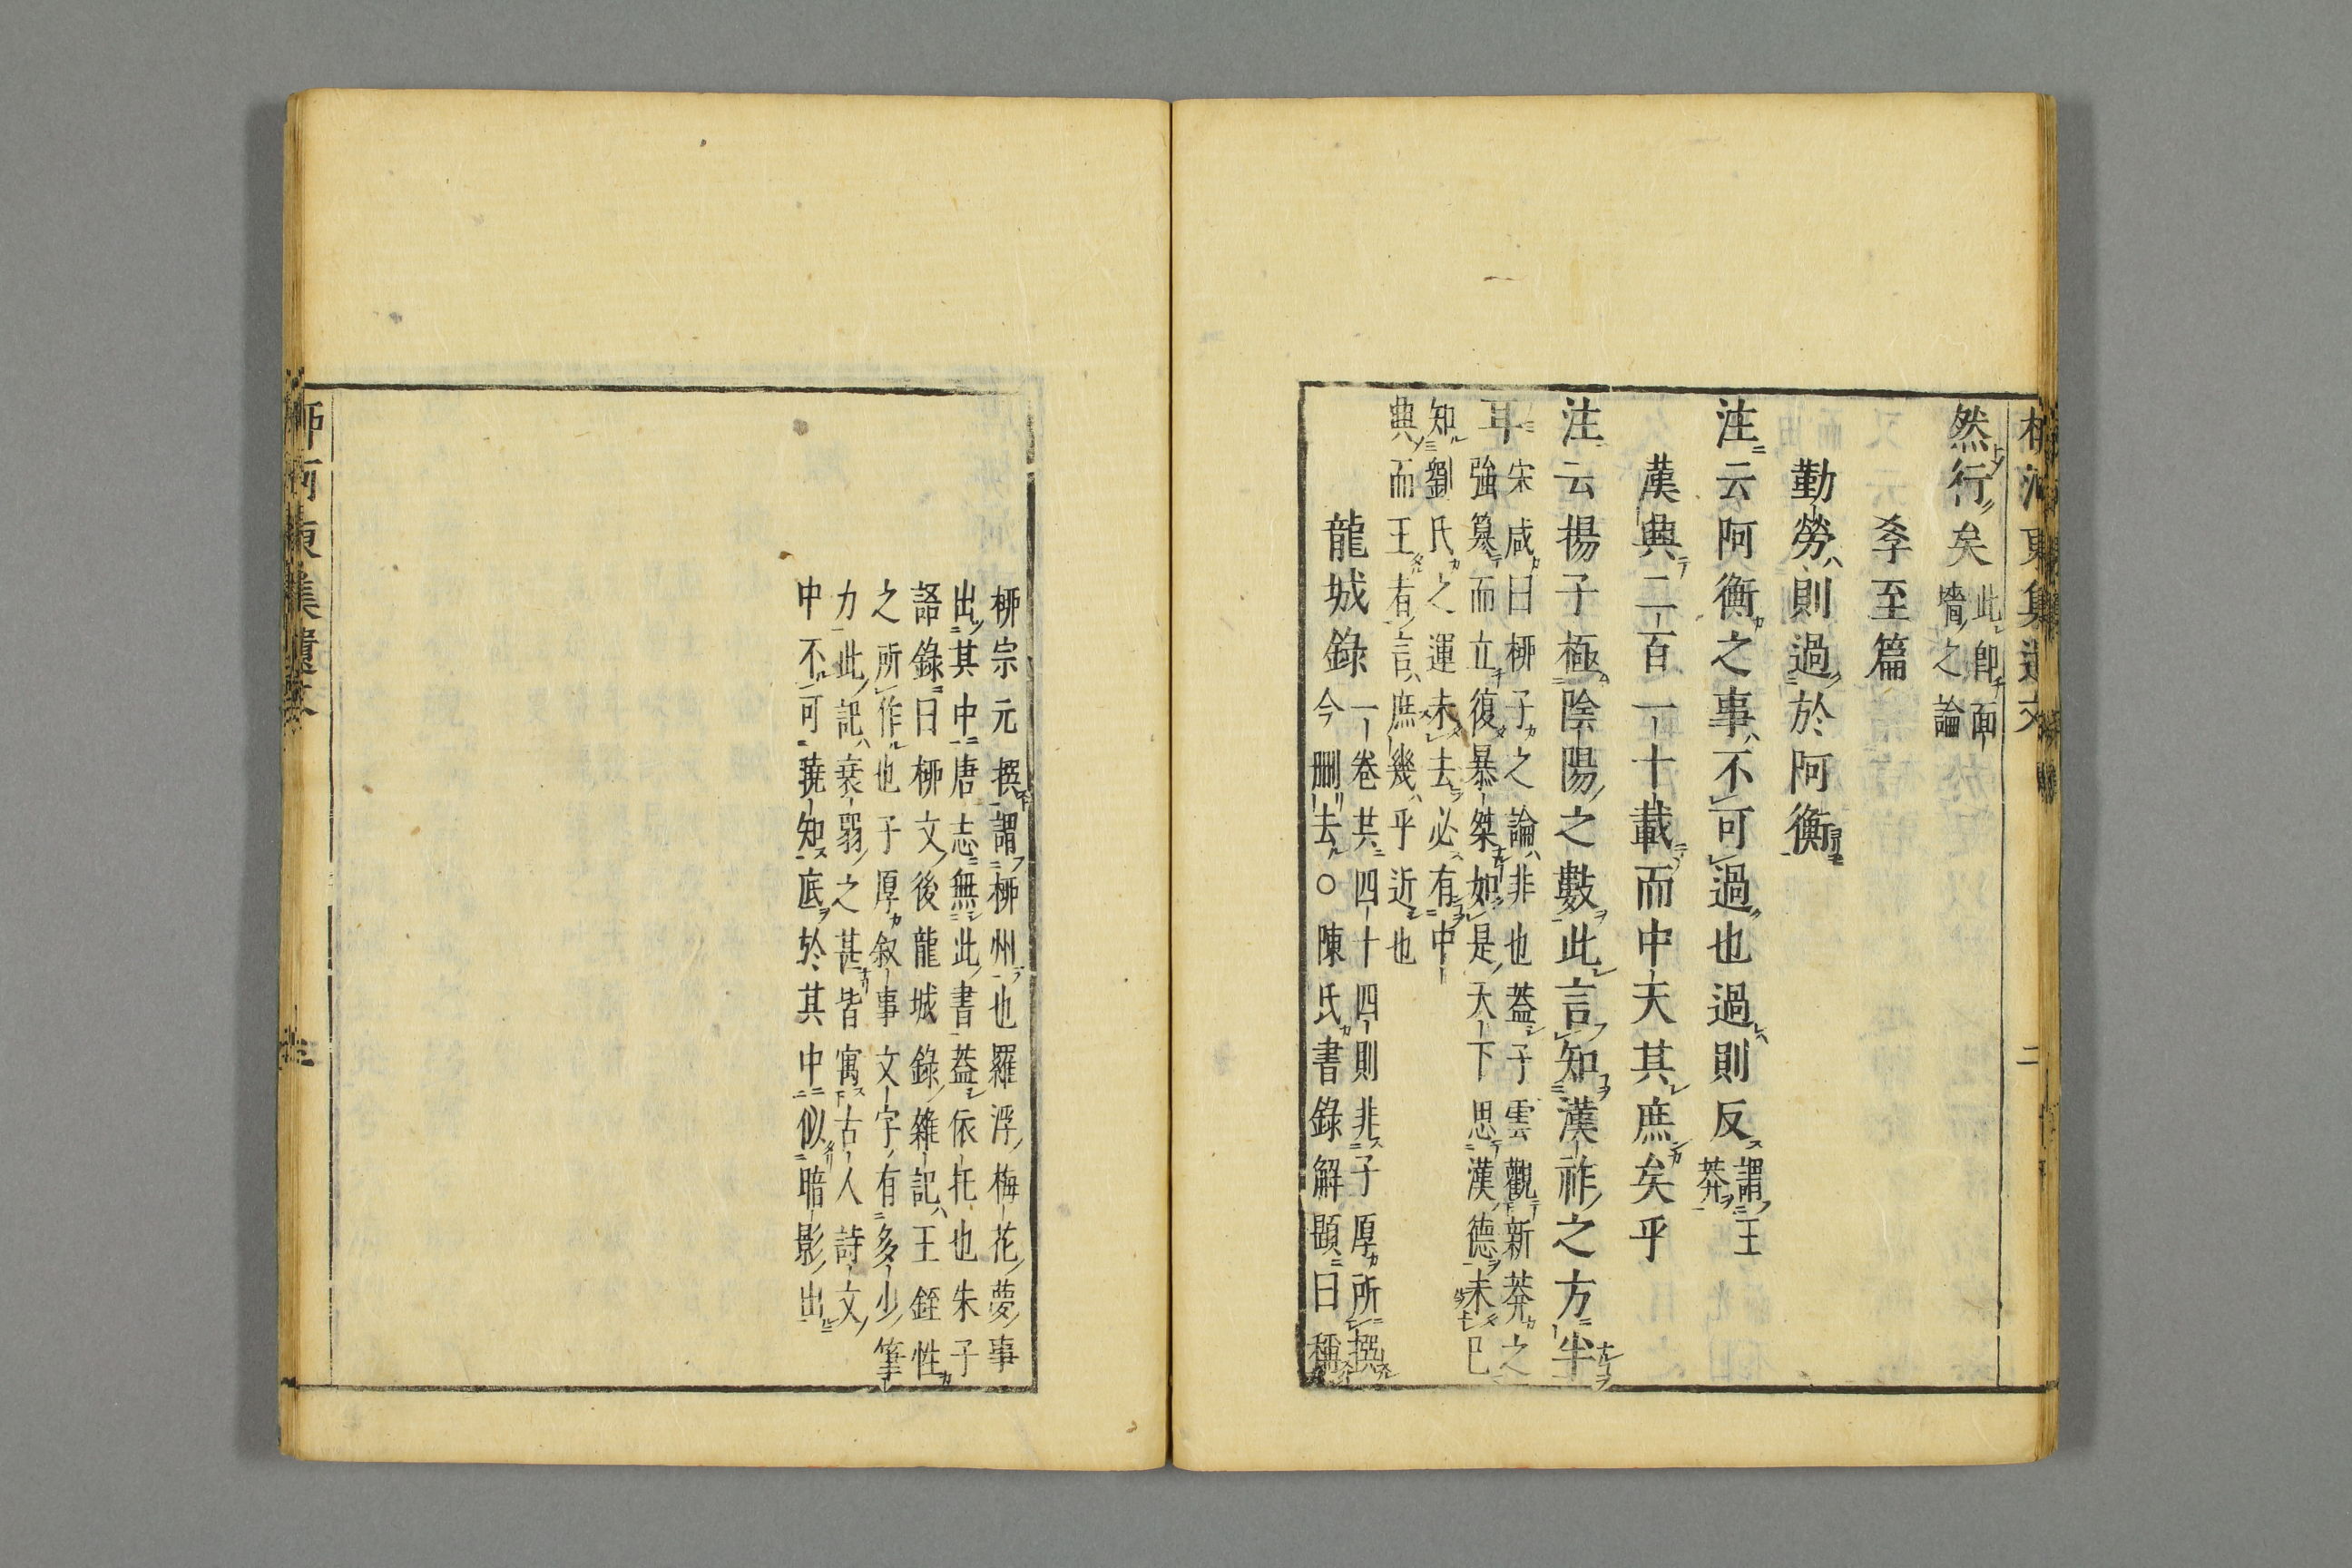 然行矣 此即面
墻之論
孝至篇
勤勞則過於阿衡
注云阿衡之事不可過也過則反 謂王
莽
漢典二百一十載而中天其庶矣乎
注云揚子極陰陽之數此言知漢祚之方半
耳 宋咸曰柳子之論非也蓋子雲觀新莽之
強篡而立復暴桀如是天下思漢德未已
知劉氏之運未去必有中
典而王者言庶幾乎近也
龍城錄 一卷共四十四則非子厚所撰
今刪去○陳氏書錄解題曰稱
柳宗元撰謂柳州也羅浮梅花夢事
出其中唐志無此書蓋依托也朱子
語錄曰柳文後龍城錄雜記王銍性
之所作也子厚叙事文字有多少筆
力此記衰弱之甚皆寓古人詩文
中不可曉知底於其中似暗影出
柳河東集遺文